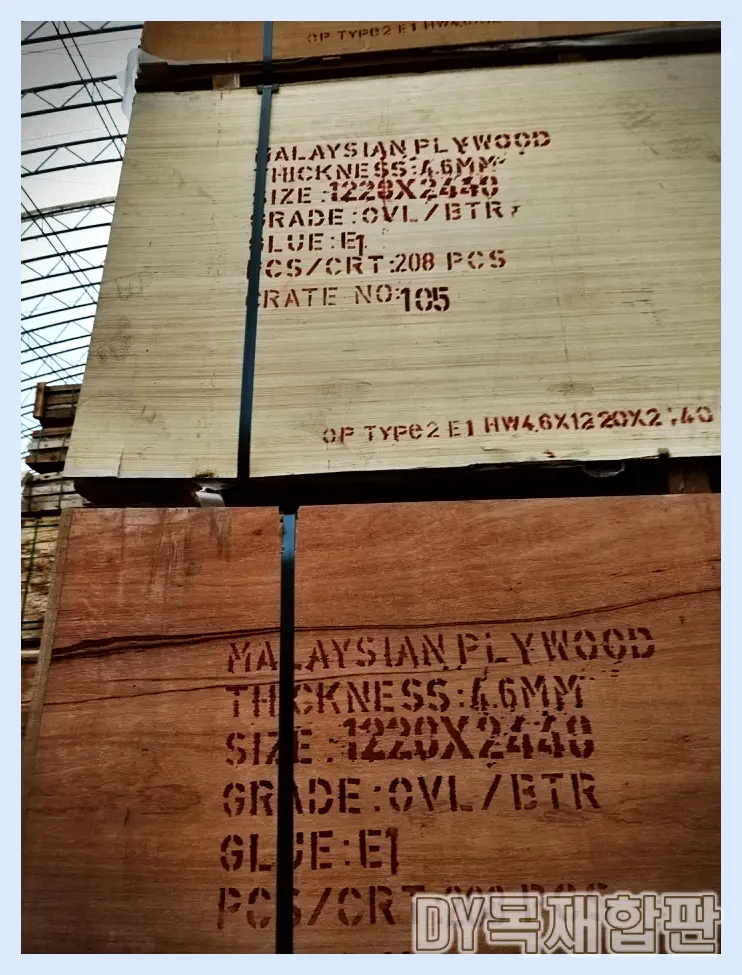 OP TYPE2 E1 HW4.6X
MALAYSIAN PLYWOOD
THICKNESS:4.6MM
SIZE:1220X2440
GRADE:OVL/BTR
GLUE:E1
PCS/CRT:208 PCS
CRATE NO:105
OP TYPE2 E1 HW4.6X1220X2440
MALAYSIAN PLYWOOD
THICKNESS:4.6MM
SIZE:1220X2440
GRADE:OVL/BTR
GLUE:E1
PCS/CRT:208 PCS
DY목재합판